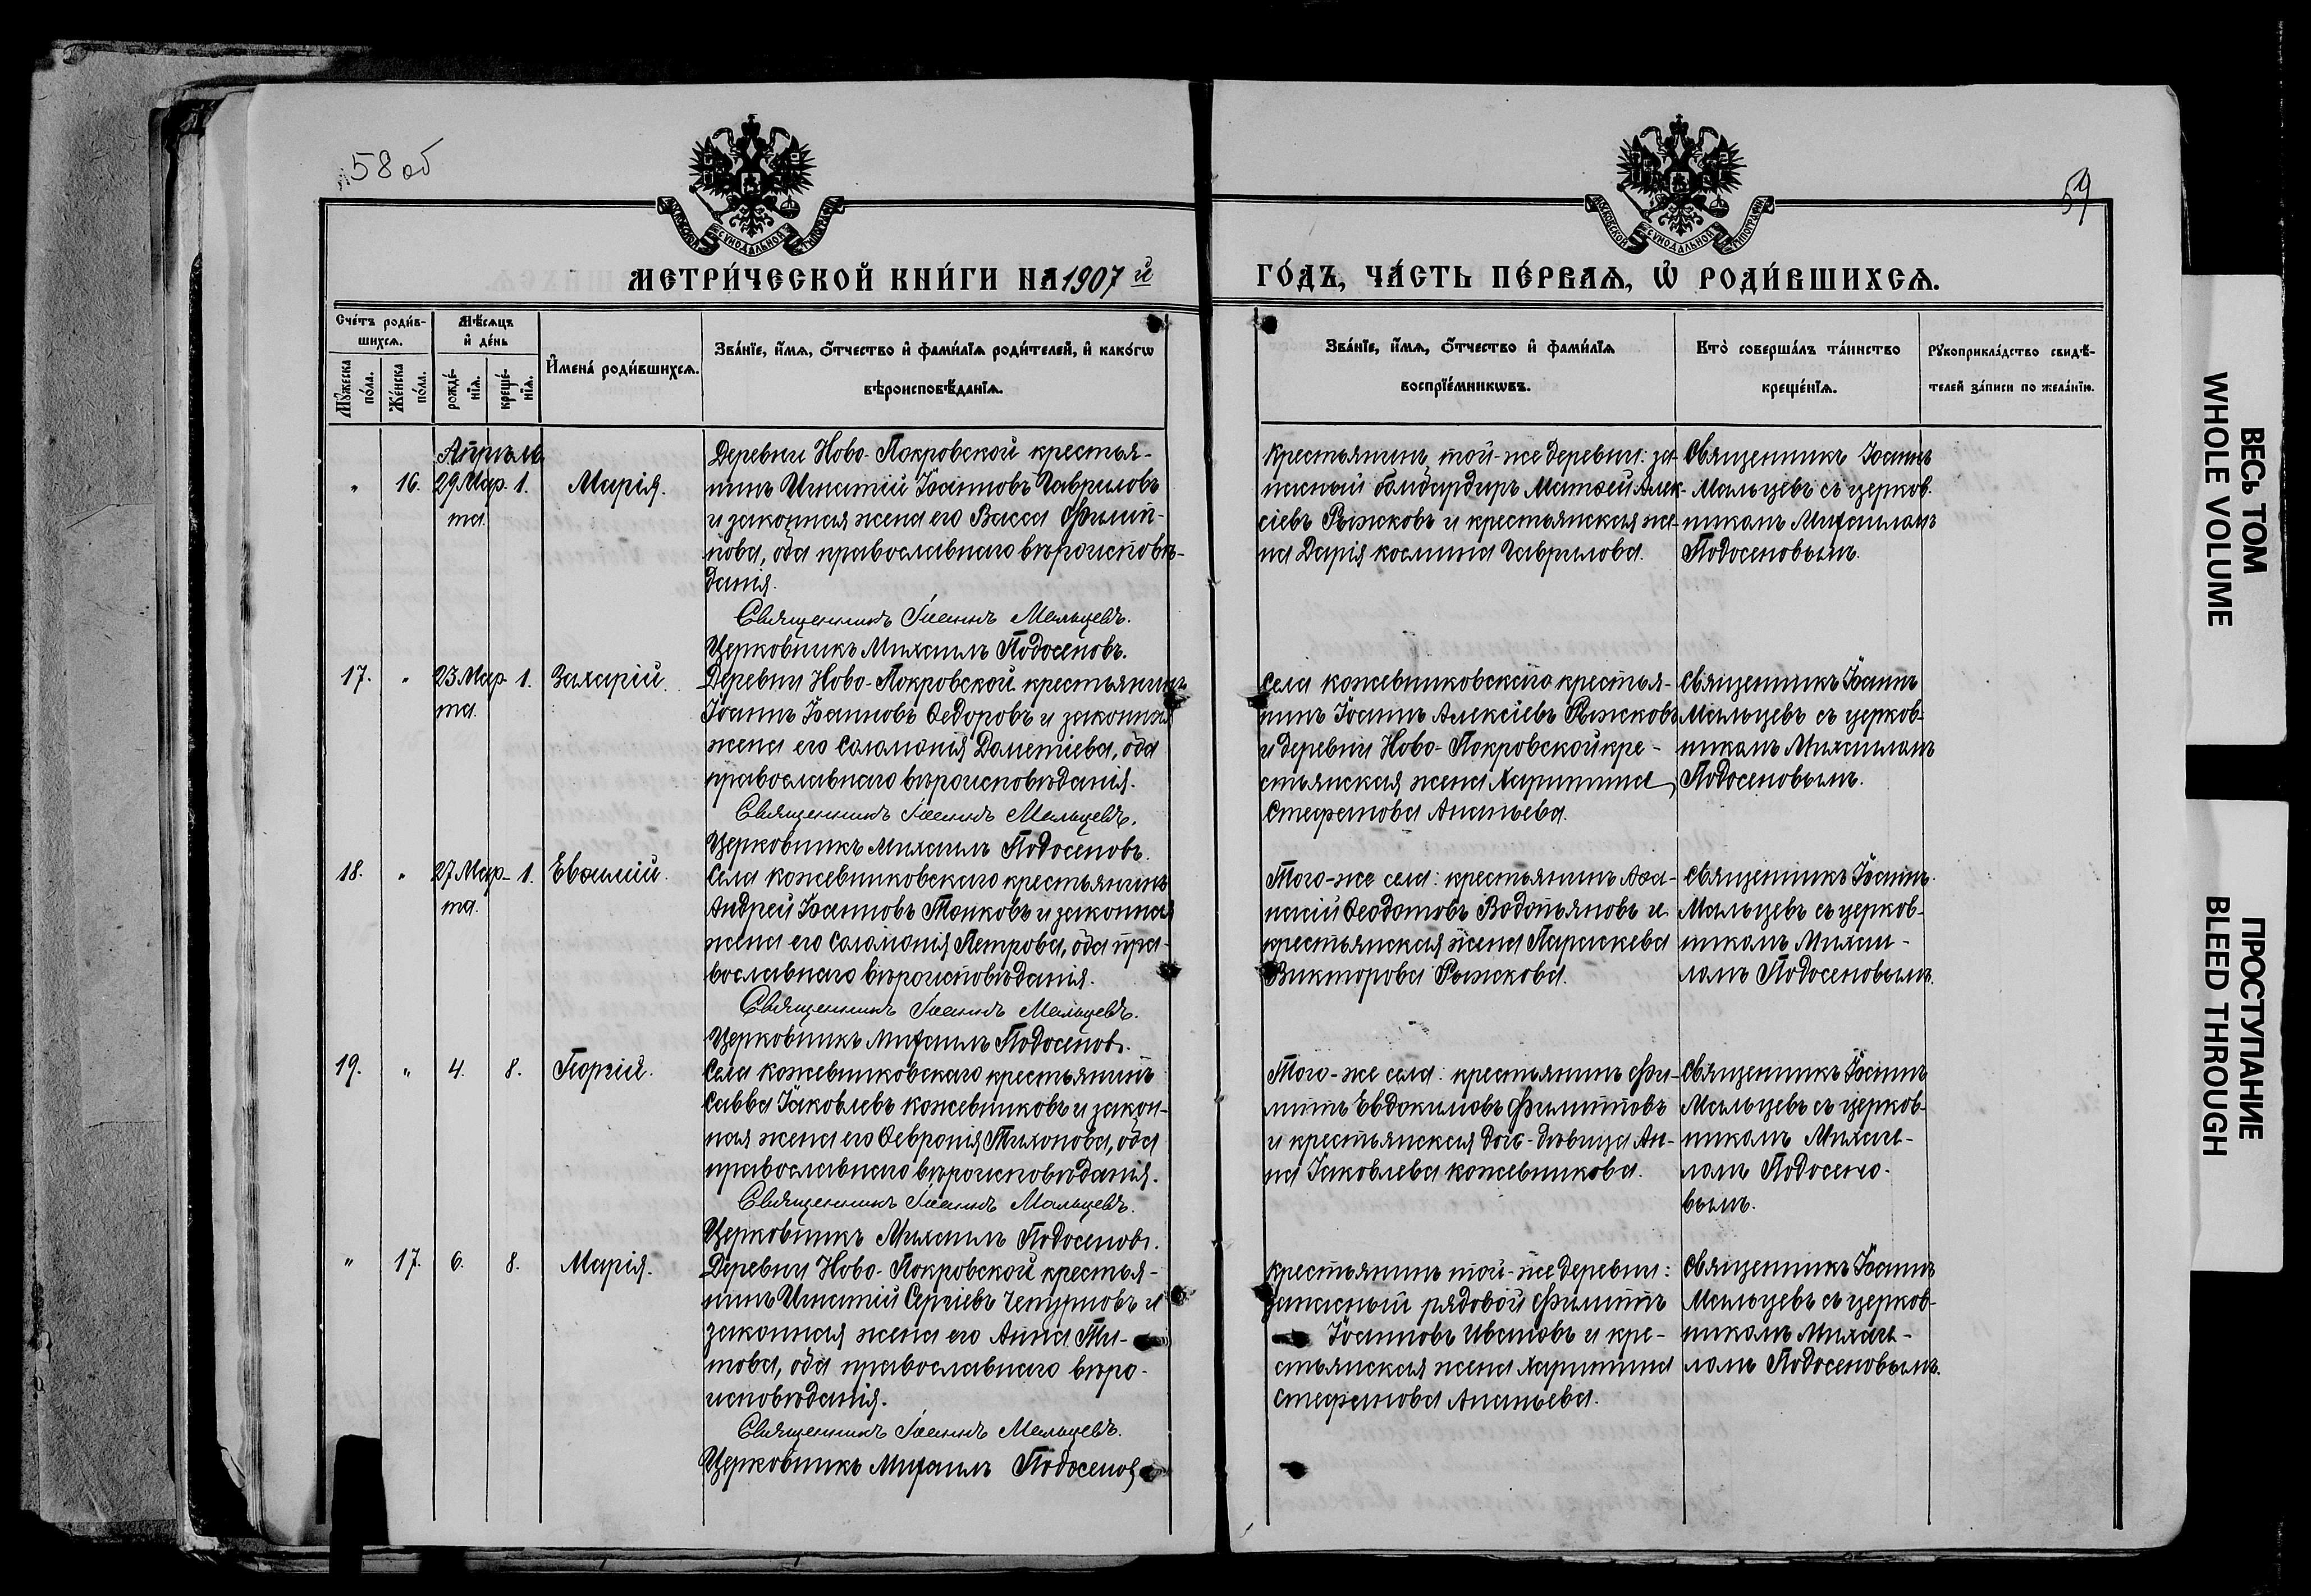 58 об
59
МОСКОВСКОЙ СѴНОДАЛЬНОЙ ТИПОГРАФІИ
МОСКОВСКОЙ СѴНОДАЛЬНОЙ ТИПОГРАФІИ
МЕТРИ́ЧЕСКОЙ КНИ́ГИ НА 1907 й
ГО́ДЪ, ЧА́СТЬ ПЕ́РВАѦ, Ѡ҆ РОДИ́ВШИХСѦ.
Сче́тъ роди́в-
шихсѧ.
Мꙋ́жеска
по́ла.
Же́нска
по́ла.
Мѣ́сѧцъ
и҆ де́нь
рожде́-
нїѧ.
креще́-
нїѧ.
И҆мена̀ роди́вшихсѧ.
Зва́нїе, и҆́мѧ, ѻ҆́тчество и҆ фами́лїѧ роди́телей, и҆ како́гѡ
вѣроисповѣ́данїѧ.
Зва́нїе, и҆́мѧ, ѻ҆́тчество и҆ фами́лїѧ
воспрїе́мникѡвъ.
Кто̀ соверша́лъ та́инство
креще́нїѧ.
Рꙋкоприкла́дство свидѣ́-
телей за́писи по жела́нїю.
Апрѣль
" 16. 29 Мар- 1. Марія.
та.
Деревни Ново-Покровской крестья-
нинъ Игнатій Іоанновъ Гавриловъ
и законная жена его Васса Филип-
пова, оба православнаго вѣроисповѣ-
данія.
Священникъ Іоаннъ Мальцевъ.
Церковникъ Михаилъ Подосеновъ.
Крестьянинъ той-же деревни: за-
пасный бомбардиръ Матѳей Алек-
сіевъ Рыжковъ и крестьянская же-
на Дарія Космина Гаврилова.
Священникъ Іоаннъ
Мальцевъ съ церков-
никомъ Михаиломъ
Подосеновымъ.
17. " 23 Мар- 1. Захарій.
та.
Деревни Ново-Покровской крестьянинъ
Іоаннъ Іоанновъ Ѳедоровъ и законная
жена его Саломонія Дометіева, оба
православнаго вѣроисповѣданія.
Священникъ Іоаннъ Мальцевъ.
Церковникъ Михаилъ Подосеновъ.
Села Кожевниковскаго крестья-
нинъ Іоаннъ Алексіевъ Рыжковъ
и деревни Ново-Покровской кре-
стьянская жена Харитина
Стефанова Ананьева.
Священникъ Іоаннъ
Мальцевъ съ церков-
никомъ Михаиломъ
Подосеновымъ.
18. " 27 Мар- 1. Евѳимій.
та.
Села Кожевниковскаго крестьянинъ
Андрей Іоанновъ Тонковъ и законная
жена его Саломонія Петрова, оба пра-
вославнаго вѣроисповѣданія.
Священникъ Іоаннъ Мальцевъ.
Церковникъ Михаилъ Подосеновъ.
Того-же села: крестьянинъ Аѳа-
насій Ѳеодотовъ Водопьяновъ и
крестьянская жена Параскева
Викторова Рыжкова.
Священникъ Іоаннъ
Мальцевъ съ церков-
никомъ Михаи-
ломъ Подосеновымъ.
19. " 4. 8. Георгій.
Села Кожевниковскаго крестьянинъ
Савва Іаковлевъ Кожевниковъ и закон-
ная жена его Ѳевронія Тихонова, оба
православнаго вѣроисповѣданія.
Священникъ Іоаннъ Мальцевъ.
Церковникъ Михаилъ Подосеновъ.
Того-же села: крестьянинъ Фи-
липпъ Евдокимовъ Филипповъ
и крестьянская дочь-дѣвица Ан-
на Іаковлева Кожевникова.
Священникъ Іоаннъ
Мальцевъ съ церков-
никомъ Михаи-
ломъ Подосено-
вымъ.
" 17. 6. 8. Марія.
Деревни Ново-Покровской крестья-
нинъ Игнатій Сергіевъ Чепурновъ и
законная жена его Анна Ти-
това, оба православнаго вѣро-
исповѣданія.
Священникъ Іоаннъ Мальцевъ.
Церковникъ Михаилъ Подосеновъ
Крестьянинъ той-же деревни:
запасный рядовой Филиппъ
Іоанновъ Ивановъ и кре-
стьянская жена Харитина
Стефанова Ананьева.
Священникъ Іоаннъ
Мальцевъ съ церков-
никомъ Михаи-
ломъ Подосеновымъ.
ВЕСЬ ТОМ
WHOLE VOLUME
ПРОСТУПАНИЕ
BLEED THROUGH